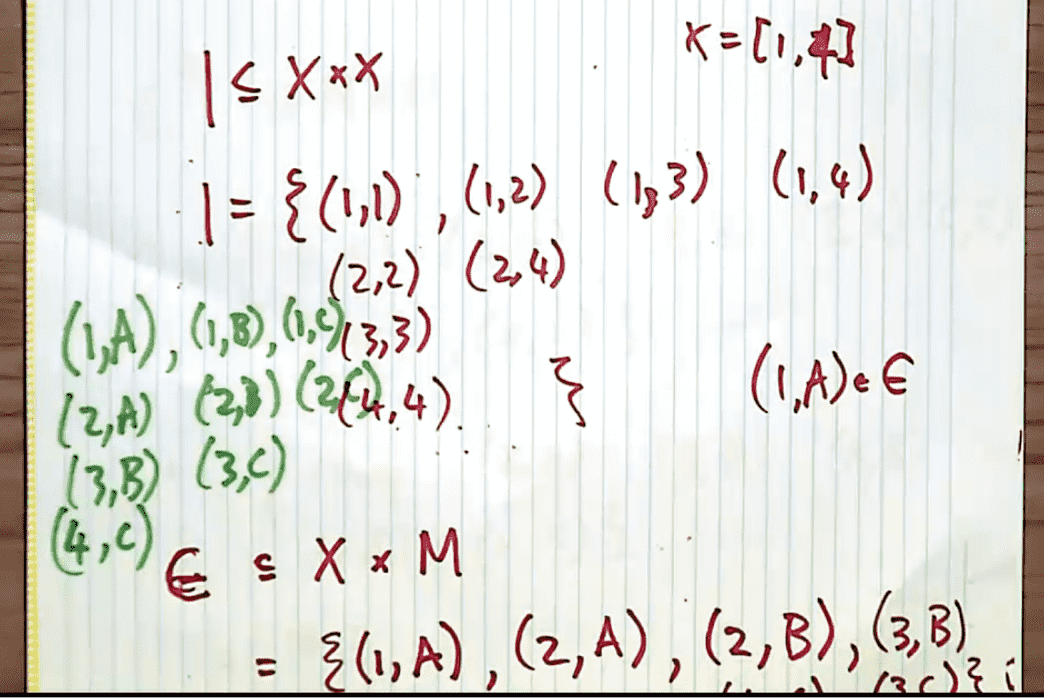 | ⊆ X × X
X = [1,4]
| = {(1,1), (1,2) (1,3) (1,4)
(2,2) (2,4)
(3,3)
(4,4). }
(1,A), (1,B), (1,C)
(2,A) (2,B) (2,C)
(3,B) (3,C)
(4,C)
(1,A) ∈ ∈
∈ ⊆ X × M
= {(1,A), (2,A), (2,B), (3,B)
(3,C)};